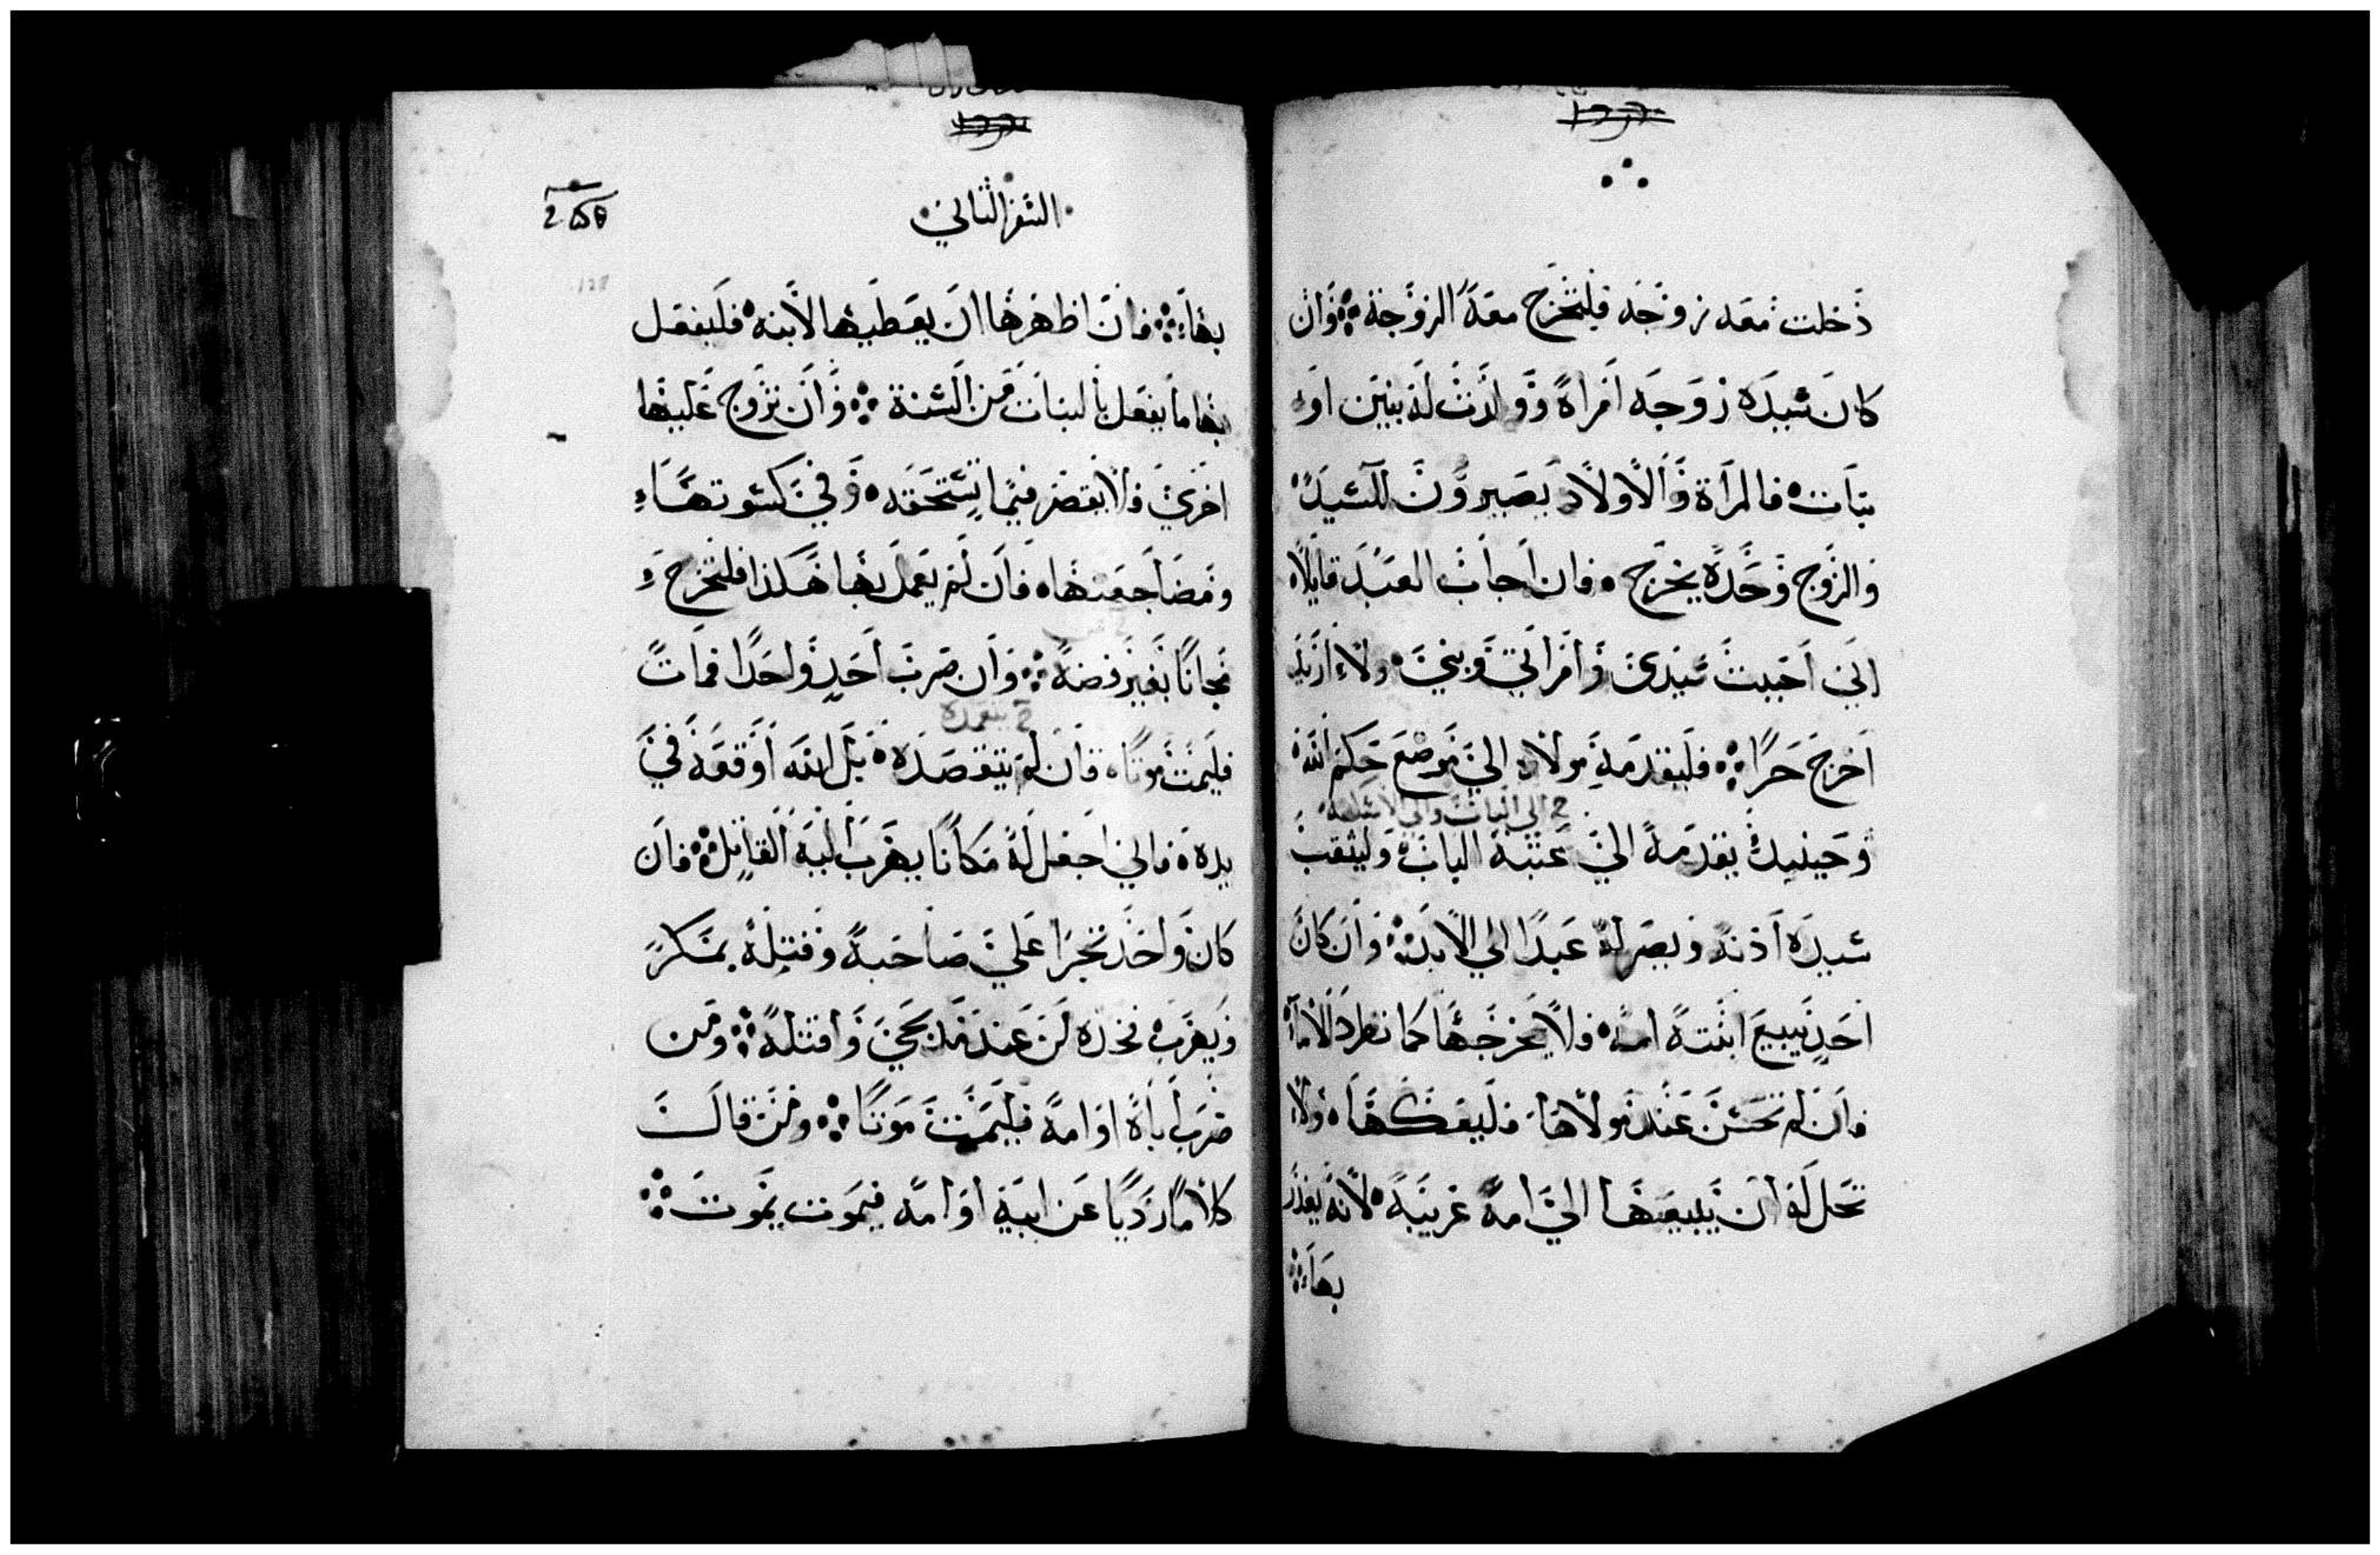 دخلت معه زوجه فلتخرج معه الزوجة وان
كان سيده زوجه امراة وولدت له بنين او
بنات فالمراة والاولاد يصيرون للسيد
والزوج وحده يخرج فان اجاب العبد قايلا
اني احببت سيدي وامراتي وبني ولا اريد
اخرج حرا فليقدمه مولاه الي موضع حكم الله
الي الباب والي الاسكفه
وحينيذ يقدمه الي عتبة الباب وليثقب
سيده اذنه ويصر له عبدا الي الابد وان كان
احد يبيع ابنته امة فلا يخرجها كما تطرد الاماء
فان لم تحسن عند مولاها فليفكها ولا
تحل له ان يبيعها الي امة غريبة لانه يغدر
بها
السفر الثاني
بها فان اظهرها ان يعطيها لابنه فليفعل
بها ما يفعل بالبنات من السنة وان تزوج عليها
اخري فلا يقصر فيما تستحقه وفي كسوتها
ومضاجعتها فان لم يعمل بها هكذا فلتخرج
مجانا بغير فضة وان ضرب احد واحدا فمات
يتعمده
فليمت موتا فان لم يتقصده بل الله اوقعه في
يده فاني اجعل له مكانا يهرب اليه القاتل فان
كان واحد تجرا علي صاحبه وقتله بمكر
ويهرب فخذه من عند مذبحي واقتله ومن
ضرب اباه او امه فليمت موتا ومن قال
كلاما رديا عن ابيه او امه فيموت يموت